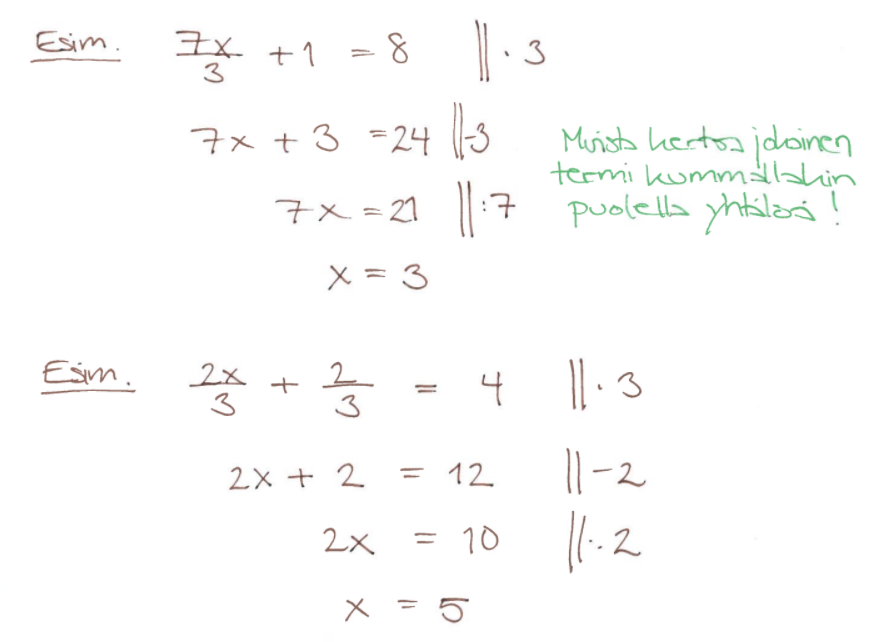 Esim. 7x/3 + 1 = 8 || · 3
7x + 3 = 24 || -3
Muista kertoa jokainen
termi kummallakin
7x = 21 || :7
puolella yhtälöä!
x = 3
Esim. 2x/3 + 2/3 = 4 || · 3
2x + 2 = 12 || -2
2x = 10 || : 2
x = 5